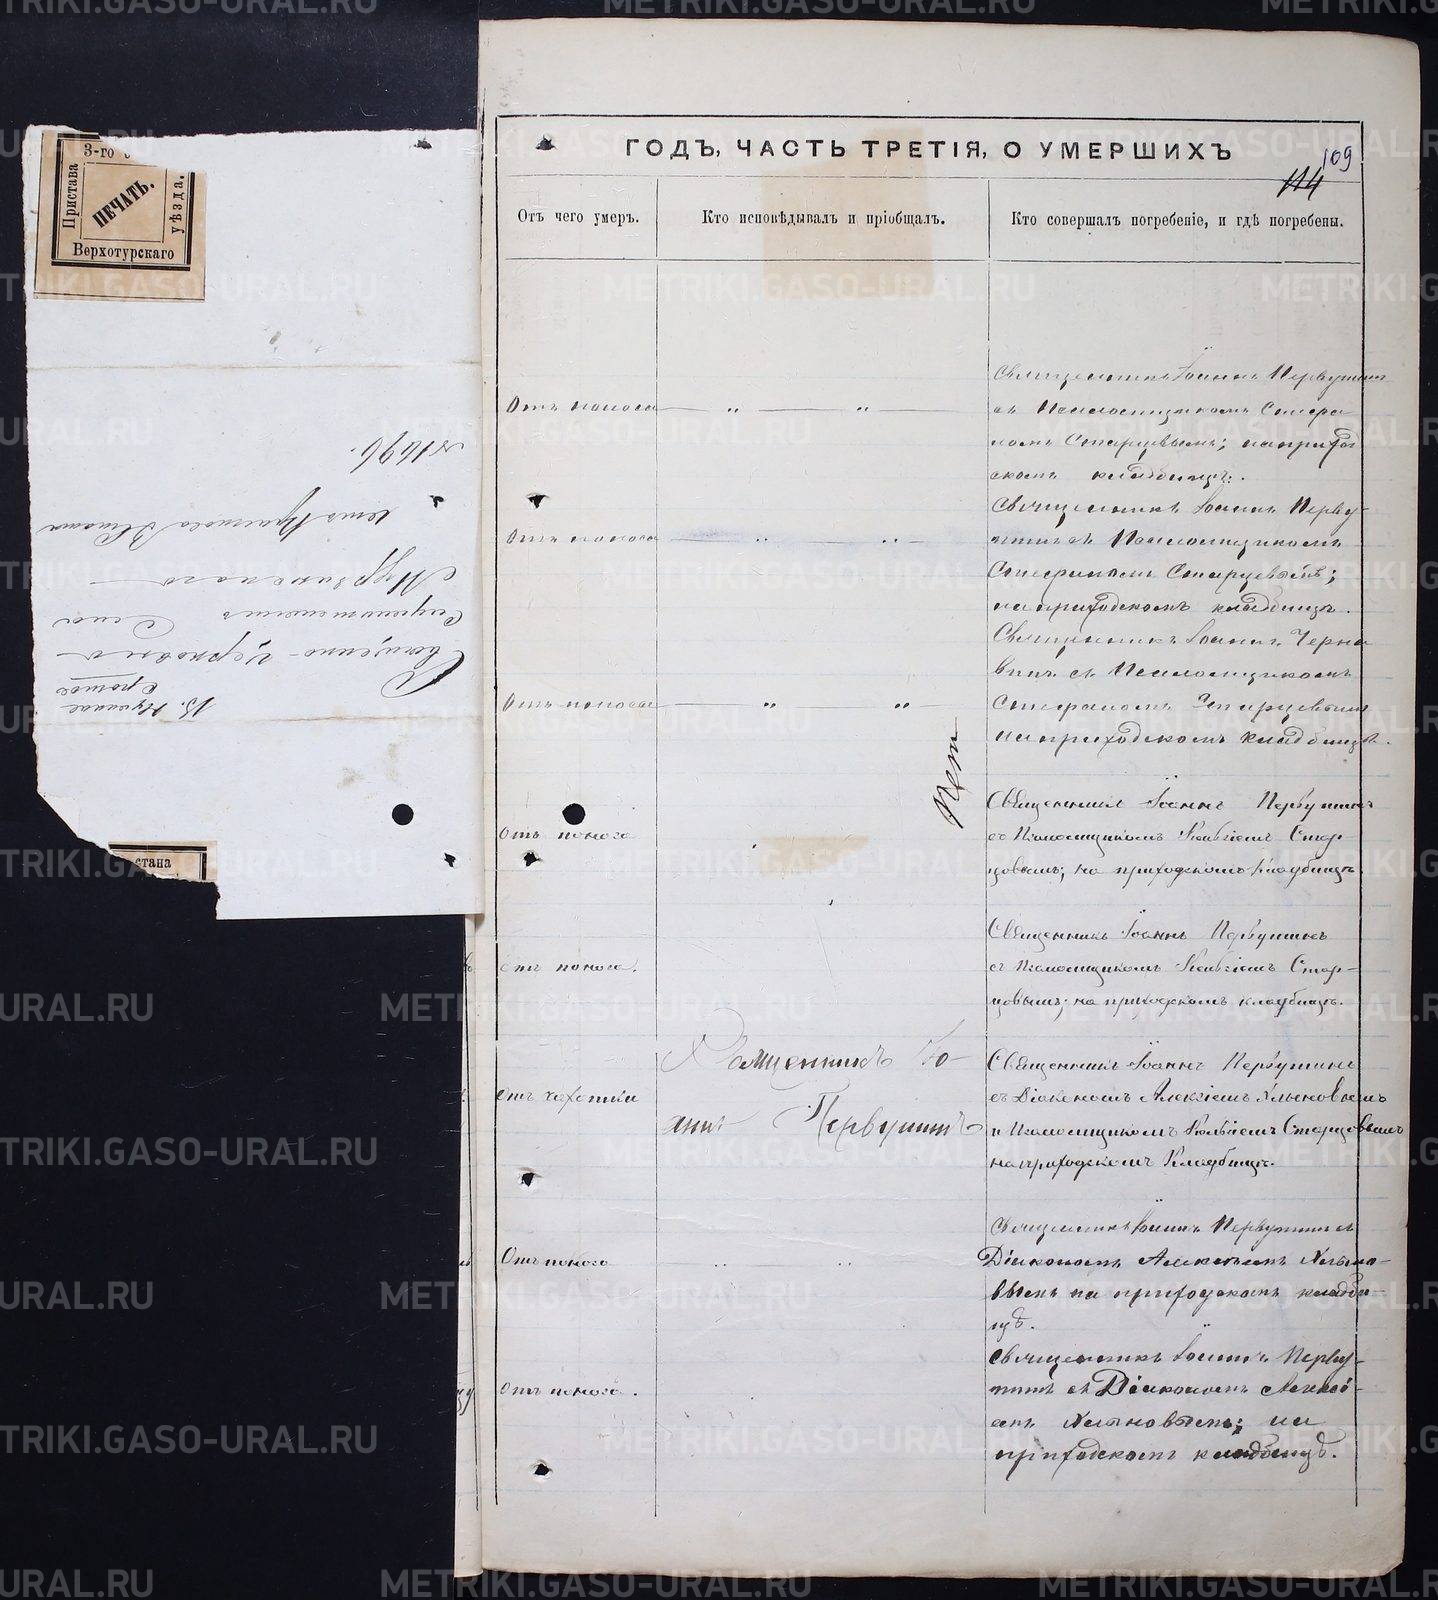 3-го
Пристава
ПЕЧАТЬ.
уѣзда.
Верхотурскаго
стана
№ 1696.
В. Нужное
Срочное
Священно-церковно
Села
Мурзинскаго
ГОДЪ, ЧАСТЬ ТРЕТІЯ, О УМЕРШИХЪ
109
114
Отъ чего умеръ.
Кто исповѣдывалъ и пріобщалъ.
Кто совершалъ погребеніе, и гдѣ погребены.
Отъ поноса
Священникъ Іоаннъ Первушинъ
съ Псаломщикомъ Стефа
номъ Старцевымъ; на приход
скомъ кладбищѣ.
Отъ поноса
Священникъ Іоаннъ Перву-
шинъ съ Псаломщикомъ
Стефаномъ Старцевымъ;
на приходскомъ кладбищѣ.
Отъ поноса
Священникъ Іоаннъ Черна
винъ съ Псаломщикомъ
Стефаномъ Старцевымъ
на приходскомъ кладбищѣ.
Нет
Отъ поноса
Священникъ Іоаннъ Первушинъ
съ Псаломщикомъ Стар-
цовымъ; на приходскомъ кладбищѣ.
Отъ поноса.
Священникъ Іоаннъ Первушинъ
съ Псаломщикомъ Стар-
цовымъ; на приходскомъ кладбищѣ.
Отъ чахотки
Священникъ Іо-
аннъ Первушинъ
Священникъ Іоаннъ Первушинъ
съ Діакономъ Алексіемъ Хлыновымъ
и Псаломщикомъ Старцовымъ
на приходскомъ кладбищѣ.
Отъ поноса
Священникъ Іоаннъ Первушинъ съ
Діакономъ Алексѣемъ Хлыно-
вымъ на приходскомъ кладби-
щѣ.
Отъ поноса.
Священникъ Іоаннъ Перву-
шинъ съ Діакономъ Алексі-
емъ Хлыновымъ; на
приходскомъ кладбищѣ.
METRIKI.GASO-URAL.RU